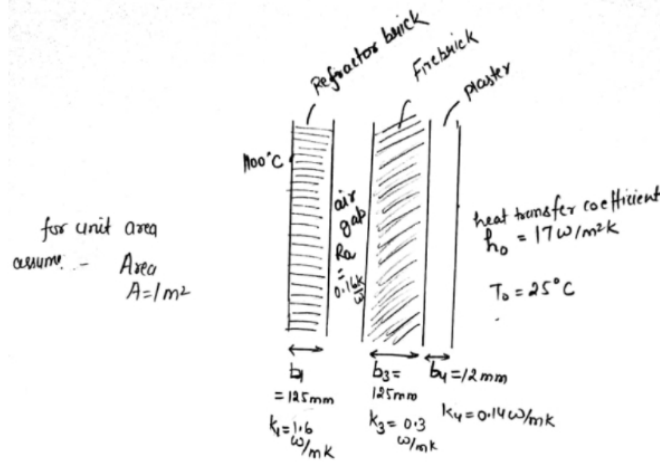 Refractor brick
Firebrick
plaster
1100°C
air
gap
Ra
=
0.16k
/w
for unit area
assume :- Area
A=1m²
heat transfer coefficient
h₀ = 17w/m²k
T₀ = 25°C
b₁
= 125mm
k₁=1.6
w/mk
b₃=
125mm
k₃=0.3
w/mk
b₄=12mm
k₄=0.14w/mk